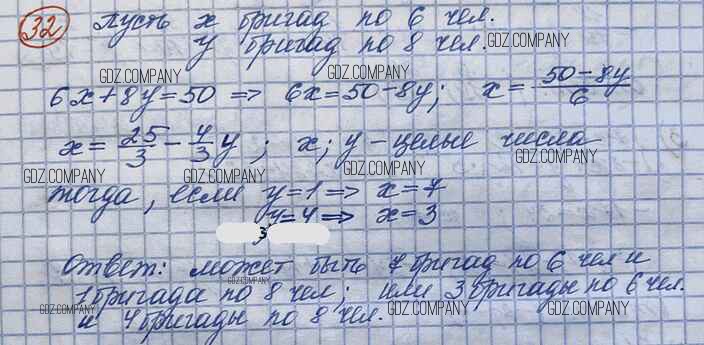 32 Пусть x бригад по 6 чел.
y бригад по 8 чел. GDZ.COMPANY
GDZ.COMPANY GDZ.COMPANY
6x+8y=50 => 6x=50-8y; x= (50-8y)/6
GDZ.COMPANY
x= 25/3 - 4/3 y ; x; y - целые числа
GDZ.COMPANY GDZ.COMPANY GDZ.COMPANY
тогда, если y=1 => x=7
y=4 => x=3
3
Ответ: может быть 7 бригад по 6 чел и
GDZ.COMPANY
1 бригада по 8 чел; или 3 бригады по 6 чел.
GDZ.COMPANY GDZ.COMPANY GDZ.COMPANY
и 4 бригады по 8 чел.